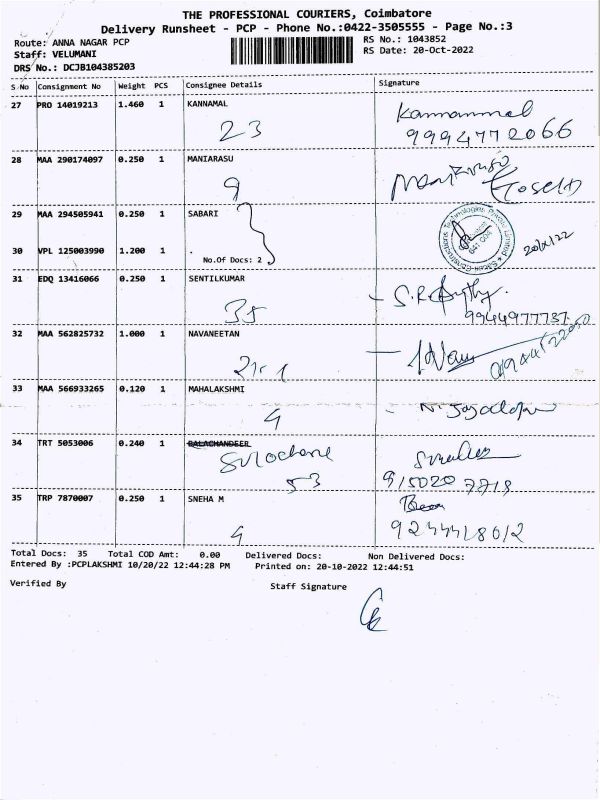 THE PROFESSIONAL COURIERS, Coimbatore
Delivery Runsheet - PCP - Phone No.:0422-3505555 - Page No.:3
Route: ANNA NAGAR PCP
RS No.: 1043852
Staff: VELUMANI
RS Date: 20-Oct-2022
DRS No.: DCJB104385203
S No Consignment No Weight PCS Consignee Details Signature
27 PRO 14019213 1.460 1 KANNAMAL
Kannammal
23
9994772066
28 MAA 290174097 0.250 1 MANIARASU
9
29 MAA 294505941 0.250 1 SABARI
30 VPL 125003990 1.200 1 .
No.Of Docs: 2
31 EDQ 13416066 0.250 1 SENTILKUMAR
35
9944977737
32 MAA 562825732 1.000 1 NAVANEETAN
33 MAA 566933265 0.120 1 MAHALAKSHMI
4
34 TRT 5053006 0.240 1 BALACHANDEER
Sulochana
53
35 TRP 7870007 0.250 1 SNEHA M
4
9244418012
Total Docs: 35 Total COD Amt: 0.00 Delivered Docs: Non Delivered Docs:
Entered By :PCPLAKSHMI 10/20/22 12:44:28 PM Printed on: 20-10-2022 12:44:51
Verified By Staff Signature